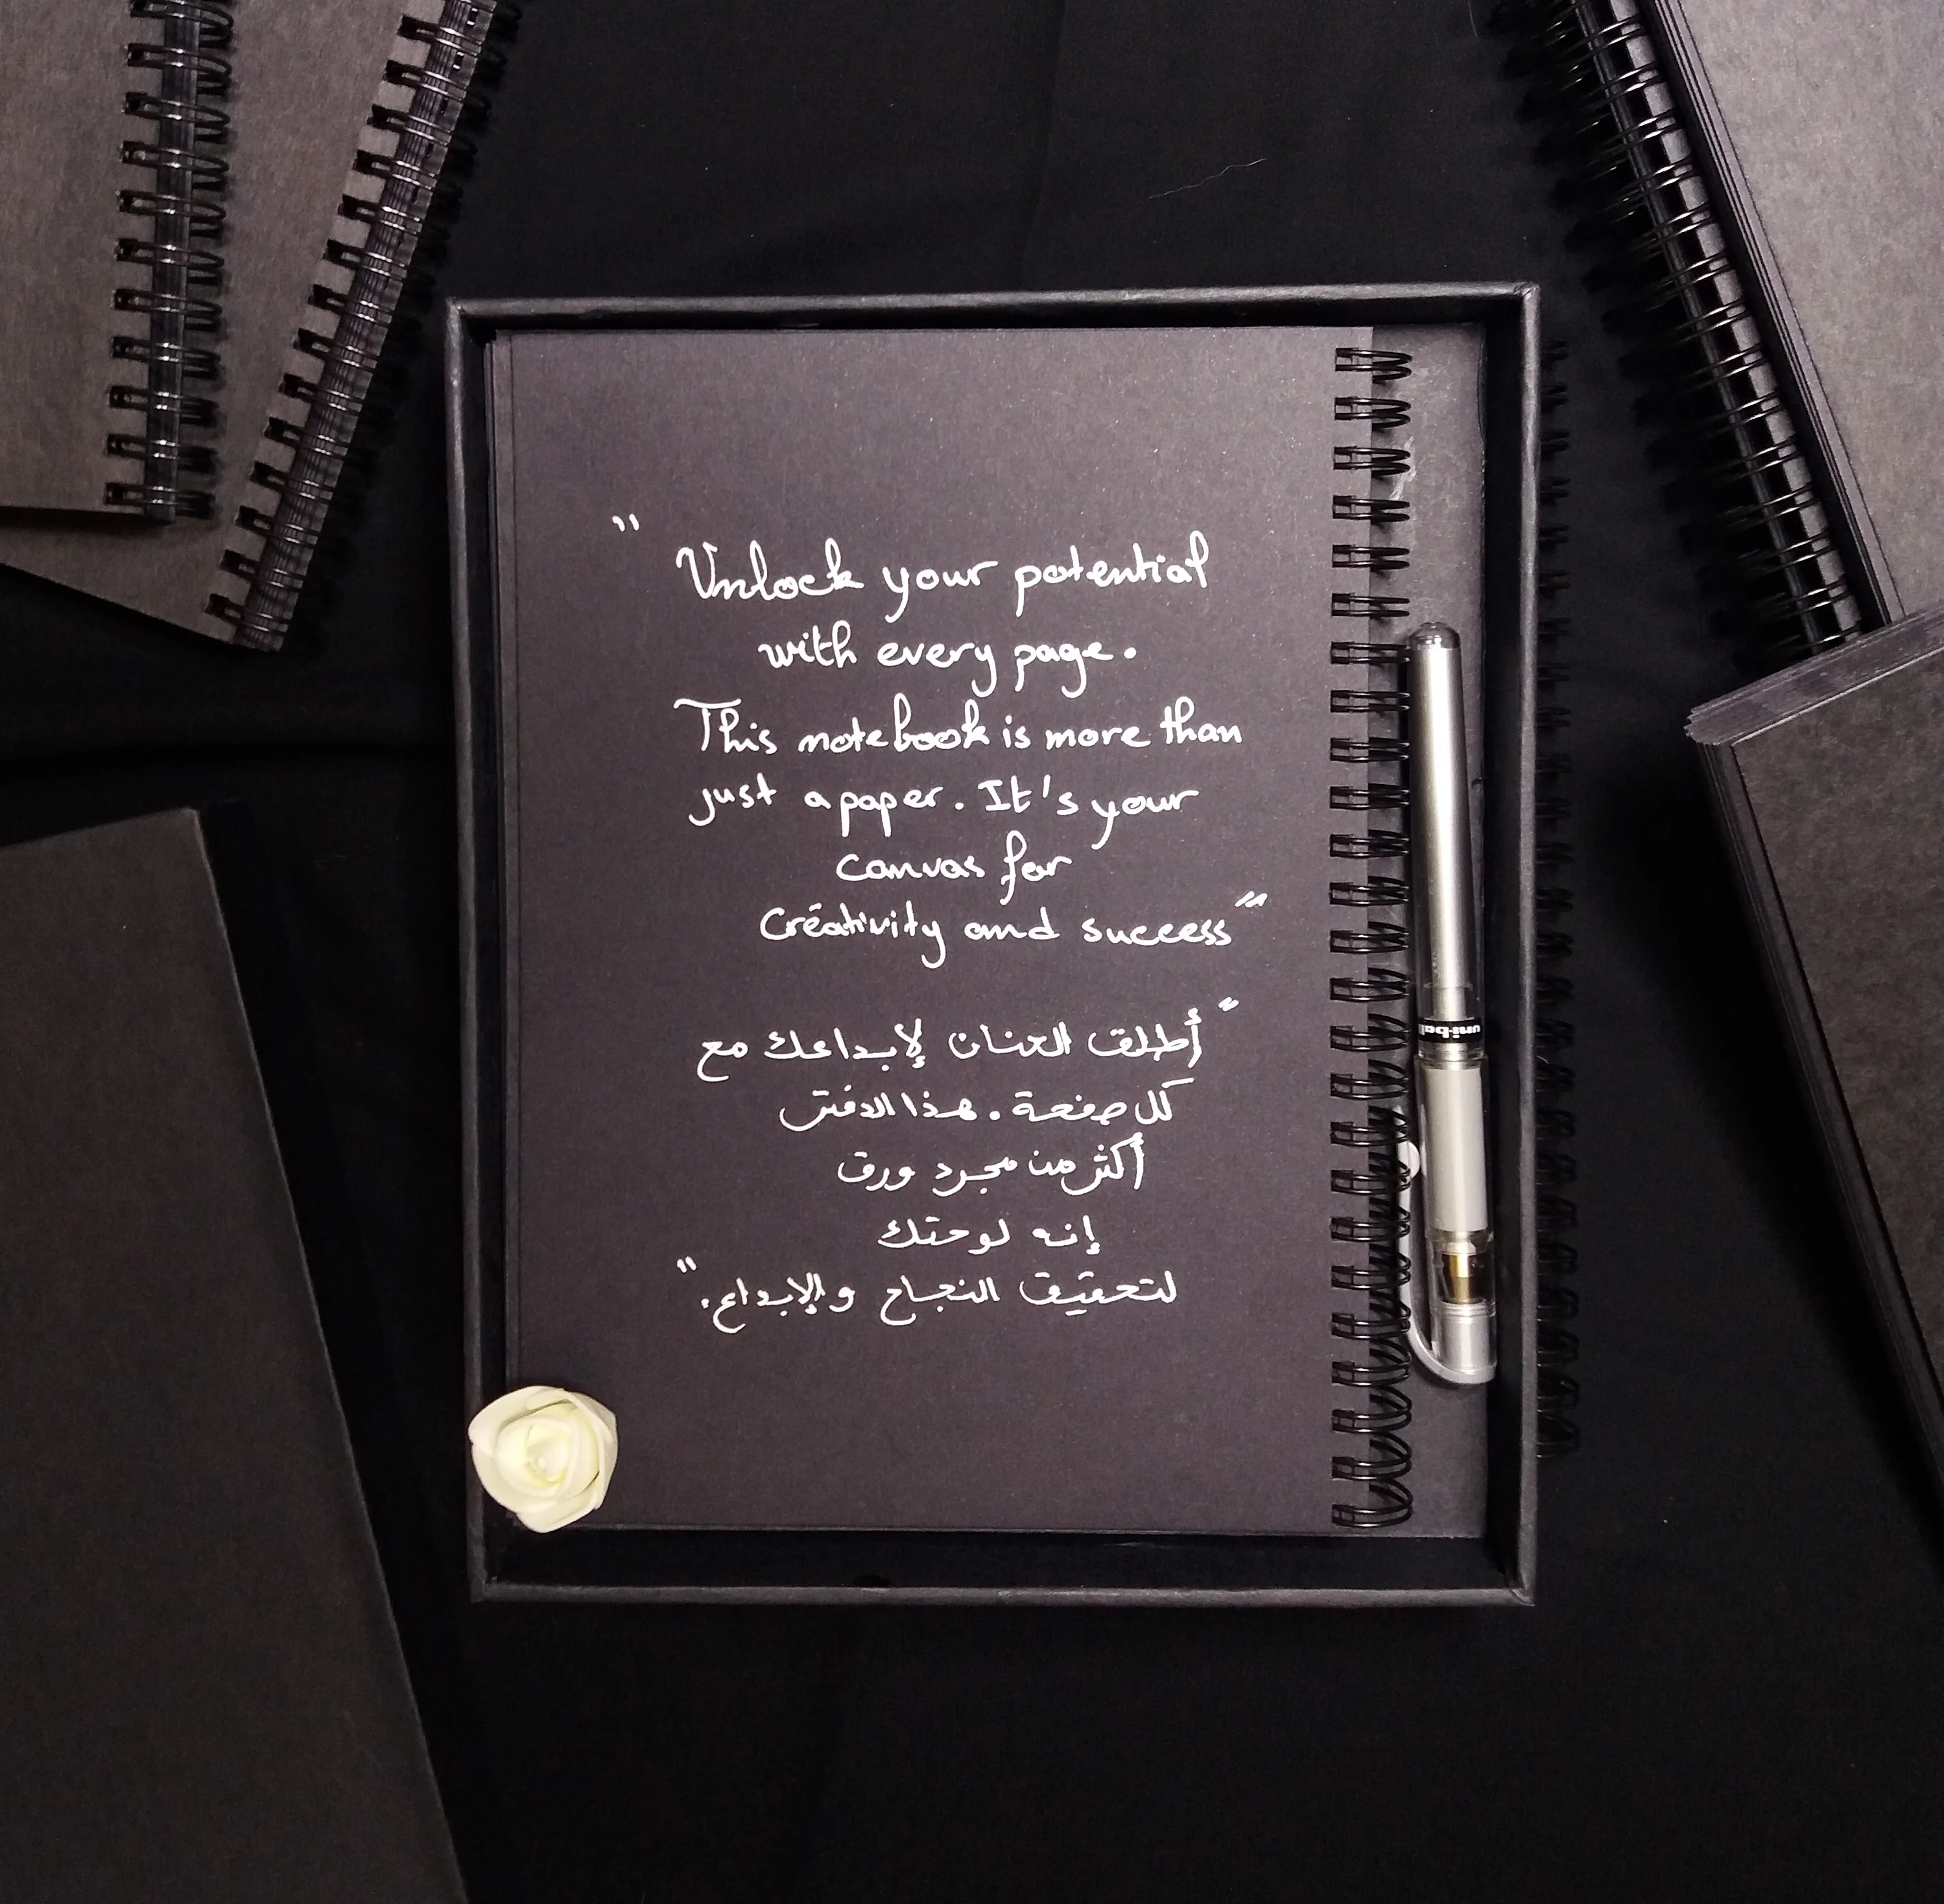 " Unlock your potential
with every page.
This notebook is more than
just a paper. It's your
canvas for
Creativity and success"
"أطلق العنان لإبداعك مع
كل صفحة. هذا الدفتر
أكثر من مجرد ورق
إنه لوحتك
لتحقيق النجاح والإبداع."
uni-ball